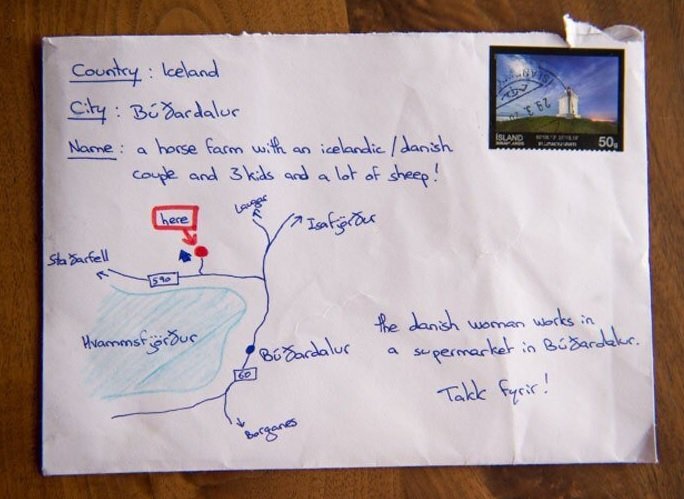 Country: Iceland
City: Búðardalur
Name: a horse farm with an icelandic/danish
couple and 3 kids and a lot of sheep!
ÍSLAND
50g
29.3.
here
Laugar
Isafjörður
Staðarfell
590
Hvammsfjörður
Búðardalur
60
Borganes
the danish woman works in
a supermarket in Búðardalur.
Takk fyrir!